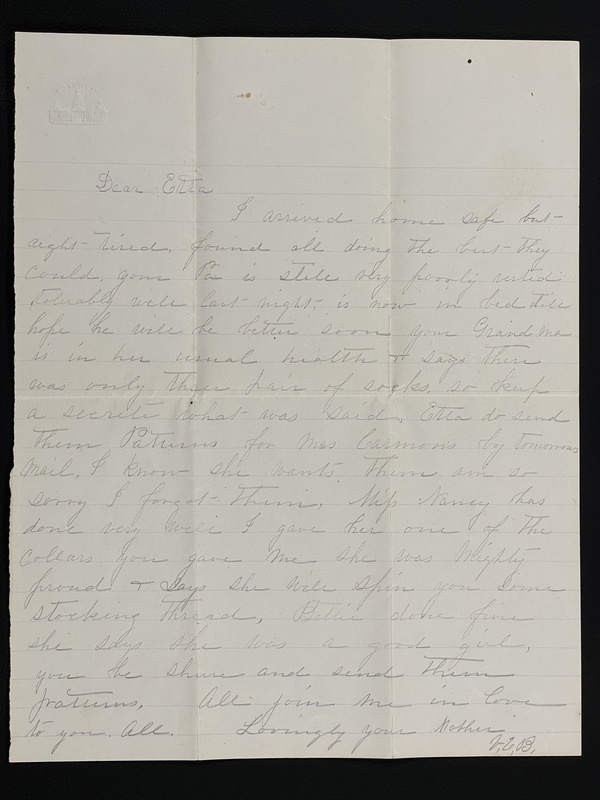 Dear Etta
I arrived home safe but
right tired, found all doing the best they
could, your Pa is still very poorly rested
toluably well last night, is now in bed still
hope he will be better soon your Grand Ma
is in her usual health & says there
was only three pair of socks, so keep
a secrete what was said, Etta do send
them Patturns for Mrs Carmons by tomorrows
Mail, I know she wants them am so
sorry I forgot them, Miss Nancy has
done very well I gave her one of the
Collars you gave me she was Mighty
proud & says she will spin you some
stocking thread, Bettie done fine
she says she was a good girl,
you be shure and send them
patturns, All join me in love
to you. All. Lovingly your Mother
V.E.B.